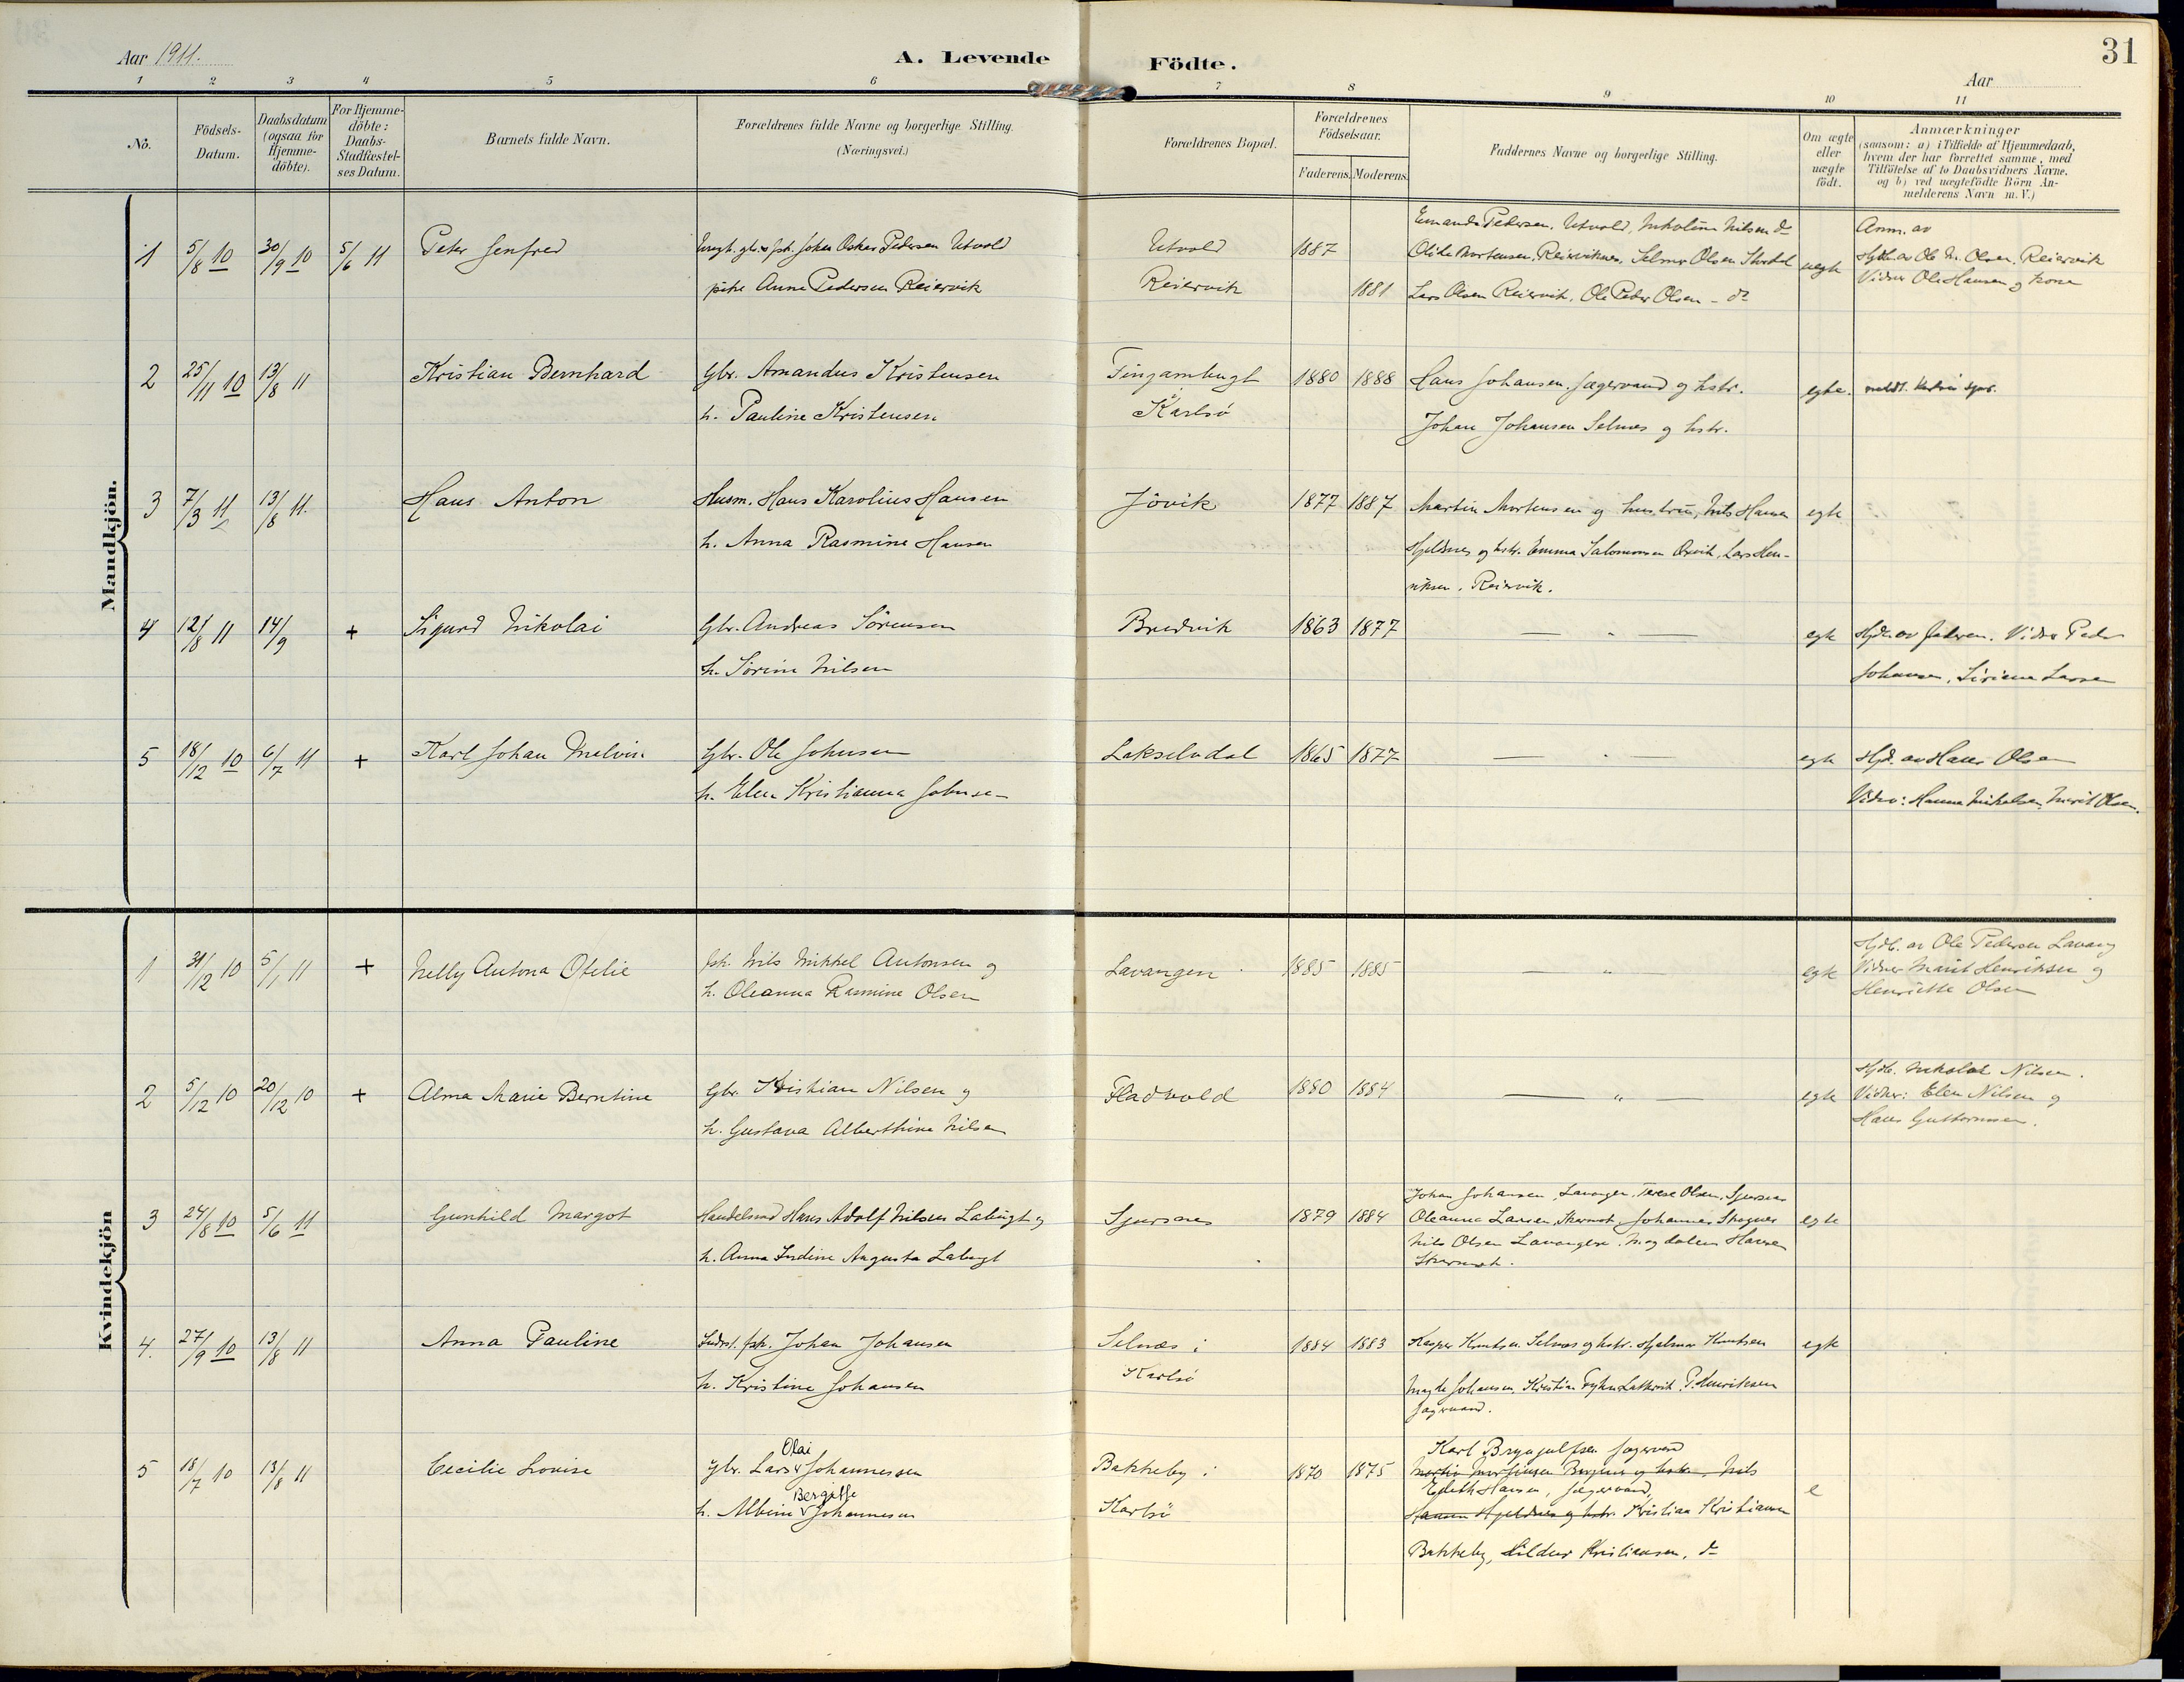 Aar 1911.
A. Levende Födte.
31
Aar
1 2 3 4 5 6 7 8 9 10 11
No.
Födsels-Datum.
Daabsdatum (ogsaa for Hjemme-döbte).
For Hjemme-döbte: Daabs-Stadfæstel-ses Datum.
Barnets fulde Navn.
Forældrenes fulde Navne og borgerlige Stilling.
(Næringsvei.)
Forældrenes Bopæl.
Forældrenes Födselsaar.
Faderens. Moderens.
Faddernes Navne og borgerlige Stilling.
Om ægte eller uægte födt.
Anmærkninger
(saasom: a) i Tilfælde af Hjemmedaab,
hvem der har forrettet samme, med
Tilföielse af to Daabsvidners Navne,
og b) ved uægtefödte Börn An-
melderens Navn m. V.)
Mandkjön.
1 5/8 10 30/9 10 5/6 11 Peter Jenfred
Ungk. gbr. s fsk. Johan Oskar Pedersen Utvold
pike Anna Pedersen Reiervik
Utvold 1887
Reiervik 1881
Pedersen, Utvold, Nikoline Nilsen do
Olide Mortensen, Reierviknes, Selma Olsen
Lars Olsen Reiervik, Ole Peder Olsen - do
uegte
Anm. av
Hjdb. av Ole N. Olsen, Reiervik
Vidner Ole Hansen og kone
2 25/11 10 13/8 11 Kristian Bernhard
Gbr. Amandus Kristensen
h. Pauline Kristensen
Karlsö
1880 1888
Hans Johansen, Jægervand og hstr.
Johan Johansen Selnes og hstr.
egte.
3 7/3 11 13/8 11. Hans Anton
Husm. Hans Karolius Hansen
h. Anna Rasmine Hansen
Jövik 1877 1887
Martin Mortensen og hustru, Nils Hansen
Hjeldnes og hstr. Emma Salomonsen, Lars Hen-
riksen, Reiervik.
egte
4 12/8 11 14/9 + Sigurd Nikolai
Gbr. Andreas Sörensen
h. Sörine Nilsen
Bredvik 1863 1877
— " —
egte
Hjdb. av faderen. Vidner Peder
Johansen, Larsen
5 18/12 10 6/7 11 + Karl Johan Melvin
Gbr. Ole Johnsen
h. Elen Kristianna Johnsen
Lakselvdal 1865 1877
— " —
egte
Hjd. av Hans Olsen
Vidner: Hanna Nikolsen, Marit Olsen.
Kvindekjön
1 31/12 10 5/1 11 + Nelly Antona Otelie
fsk. Nils Mikkel Antonsen og
h. Oleanna Rasmine Olsen
Lavangen 1885 1885
— " —
egte
Hjdb. av Ole Pedersen Lavang
Vidner Marit Henriksen og
Henriette Olsen
2 5/12 10 20/12 10 + Alma Marie Berntine
Gbr. Kristian Nilsen og
h. Gustava Alberthine Nilsen
Fladvold 1880 1884
— " —
egte
Hjdb. Nikolai Nilsen.
Vidner: Elen Nilsen og
Hans Guttormsen.
3 24/8 10 5/6 11 Gunhild Margot
Handelsmd Hans Adolf Nilsen Labugt og
h. Anna Indine Augusta Labugt
Sjursnes 1879 1884
Johan Johansen, Lavangen, Terese Olsen, Sjursnes
Oleanna Larsen, Skarmot, Johannes
Nils Olsen Lavangen, Magdalene Hansen
Skarmot.
egte
4. 27/9 10 13/8 11 Anna Pauline
Inderst. fsk. Johan Johansen
h. Kristine Johansen
Selnæs i
Karlsö
1884 1883
Kasper Knutsen Selnæs og hstr. Hjalmar Knutsen
Johansen, Kristian P. Henriksen
Jægervand.
egte
5 18/7 10 13/8 11 Cecilie Lovise
Olai
gbr. Lars v Johannessen
Bergitte
h. Albine v Johannesen
Bakkeby i
Karlsö
1870 1875
Karl Bryngulfsen Jægervand
Martin Mortensen og hstr., Nils
Edith Hansen, Jægervand,
Hansen Hjeldnes og hstr. Kristian Kristiansen
Bakkeby, Hildur Kristiansen, do
e